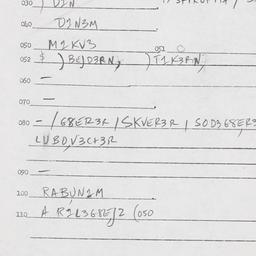 030 ) D2N
040 D2N3M
050 M2KV3
052 $ ) BEJD3RN, 052 ) T2K3RN,
060 —
070 —
080 — / G8ER3R / SKVER3R / SOD3G8ER3
LUBD,V3CH3R
090 —
100 RABUN2M
110 A R2L3G8EJ2 (050